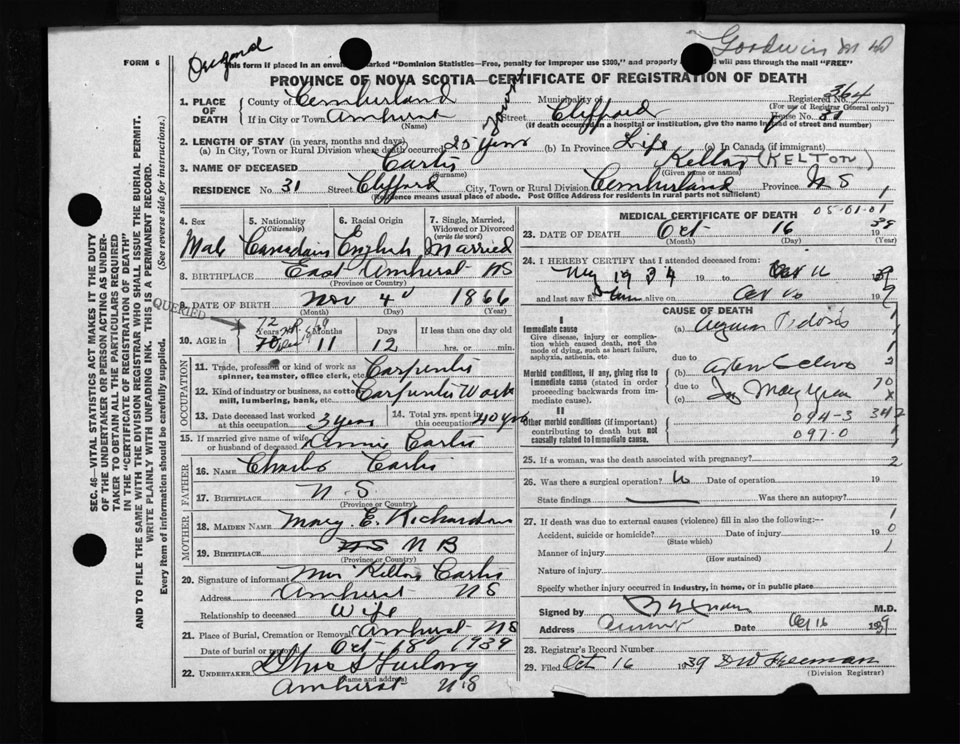 Goodwin M D
FORM 6
This form if placed in an envelope marked "Dominion Statistics—Free, penalty for improper use $300," and properly will pass through the mail "FREE"
PROVINCE OF NOVA SCOTIA—CERTIFICATE OF REGISTRATION OF DEATH
1. PLACE OF DEATH County of Cumberland Municipality of Registered No. 364
(For use of Registrar General only)
If in City or Town Amherst Street Clifford House No. 31
(Name) (If death occurred in a hospital or institution, give the name instead of street and number)
2. LENGTH OF STAY (in years, months and days)
(a) In City, Town or Rural Division where death occurred 25 years (b) In Province Life (c) In Canada (if immigrant)
3. NAME OF DECEASED Carlis Kelton (KELTON)
(Surname) (Given name or names)
RESIDENCE No. 31 Street Clifford City, Town or Rural Division Cumberland Province N S 1
(Residence means usual place of abode. Post Office Address for residents in rural parts not sufficient)
SEC. 46—VITAL STATISTICS ACT MAKES IT THE DUTY
OF THE UNDERTAKER OR PERSON ACTING AS UNDERTAKER TO OBTAIN ALL THE PARTICULARS REQUIRED
IN THE "CERTIFICATE OF REGISTRATION OF DEATH"
AND TO FILE THE SAME WITH THE DIVISION REGISTRAR WHO SHALL ISSUE THE BURIAL PERMIT.
WRITE PLAINLY WITH UNFADING INK. THIS IS A PERMANENT RECORD.
Every item of information should be carefully supplied. (See reverse side for instructions.)
4. Sex 5. Nationality 6. Racial Origin 7. Single, Married, Widowed or Divorced
(Citizenship) (write the word)
Male Canadian English Married
8. BIRTHPLACE East Amherst NS
(Province or Country)
9. DATE OF BIRTH Nov 4 1866
(Month) (Day) (Year)
QUERIED
72
10. AGE in Years 70 Months 11 Days 12 If less than one day old
hrs. or min.
OCCUPATION
11. Trade, profession or kind of work as spinner, teamster, office clerk, etc. Carpenter
12. Kind of industry or business, as cotton mill, lumbering, bank, etc. Carpenter Work
13. Date deceased last worked at this occupation 3 years 14. Total yrs. spent in this occupation 40 yrs
15. If married give name of wife or husband of deceased Annie Carlis
FATHER
16. NAME Charles Carlis
17. BIRTHPLACE N. S
(Province or Country)
MOTHER
18. MAIDEN NAME Mary E. Richardson
19. BIRTHPLACE NS N B
(Province or Country)
20. Signature of informant Mrs Kelton Carlis
Address Amherst NS
Relationship to deceased Wife
21. Place of Burial, Cremation or Removal Amherst NS
Date of burial or removal Oct 18 1939
22. UNDERTAKER Furlong
(Name and address)
Amherst N S
MEDICAL CERTIFICATE OF DEATH
05-01-01
23. DATE OF DEATH Oct 16 1939
(Month) (Day) (Year)
24. I HEREBY CERTIFY that I attended deceased from:
1934 19 to Oct 16 39
and last saw him alive on Oct 16 19
CAUSE OF DEATH
I
Immediate cause
Give disease, injury or complication which caused death, not the mode of dying, such as heart failure, asphyxia, asthenia, etc.
(a) Angina Pectoris
due to
Morbid conditions, if any, giving rise to immediate cause (stated in order proceeding backwards from immediate cause).
(b)
due to
(c)
II
Other morbid conditions (if important) contributing to death but not causally related to immediate cause.
094-3 342
097-0
25. If a woman, was the death associated with pregnancy?
26. Was there a surgical operation? No Date of operation 19
State findings Was there an autopsy?
27. If death was due to external causes (violence) fill in also the following:—
Accident, suicide or homicide? Date of injury 19
(State which)
Manner of injury
(How sustained)
Nature of injury
Specify whether injury occurred in industry, in home, or in public place
Signed by M.D.
Address Date Oct 16 1939
28. Registrar's Record Number
29. Filed Oct 16 1939 D W Freeman
(Division Registrar)